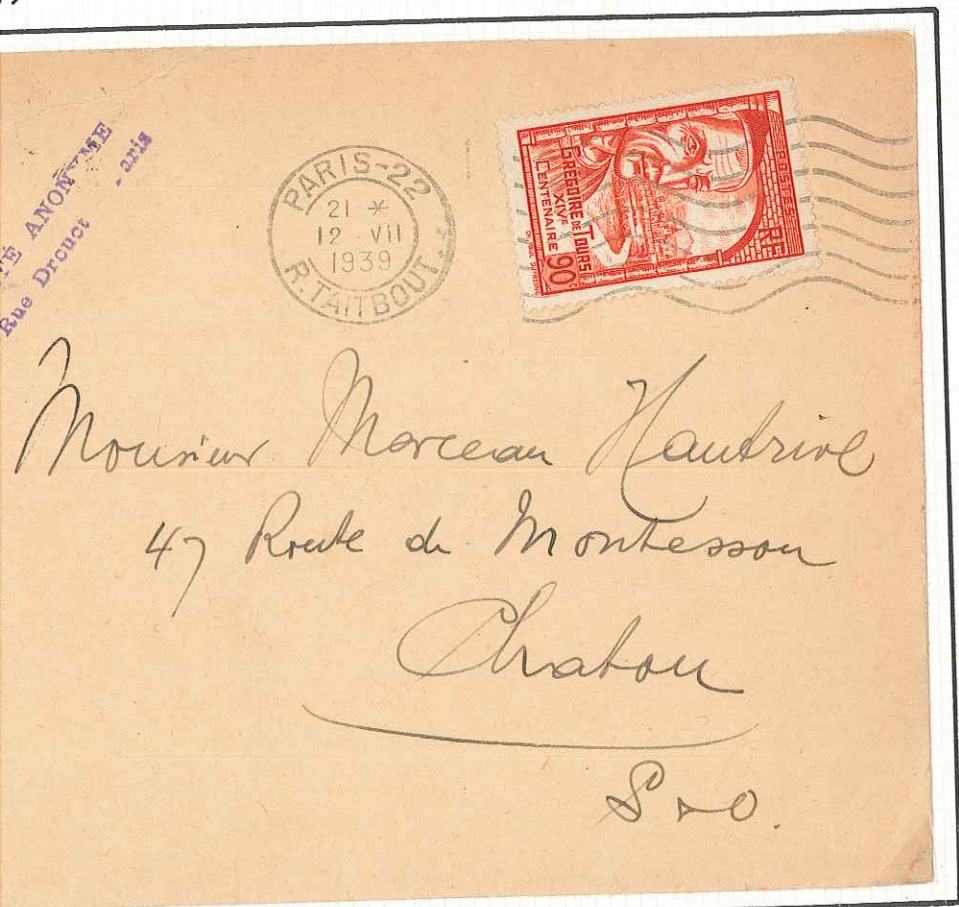 É ANONYME
Rue Drouot
aris
PARIS-22
21 *
12 VII
1939
R. TAITBOUT.
POSTES RF
GRÉGOIRE DE TOURS
XIVE
CENTENAIRE 90c
Monsieur Marceau Hautrive
47 Route de Montesson
Chatou
S & O.